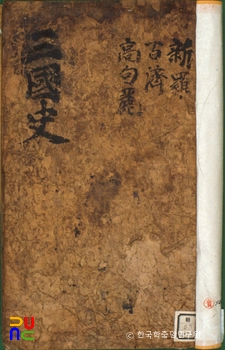 新羅
百濟
高句麗
三國史
© 한국학중앙연구원